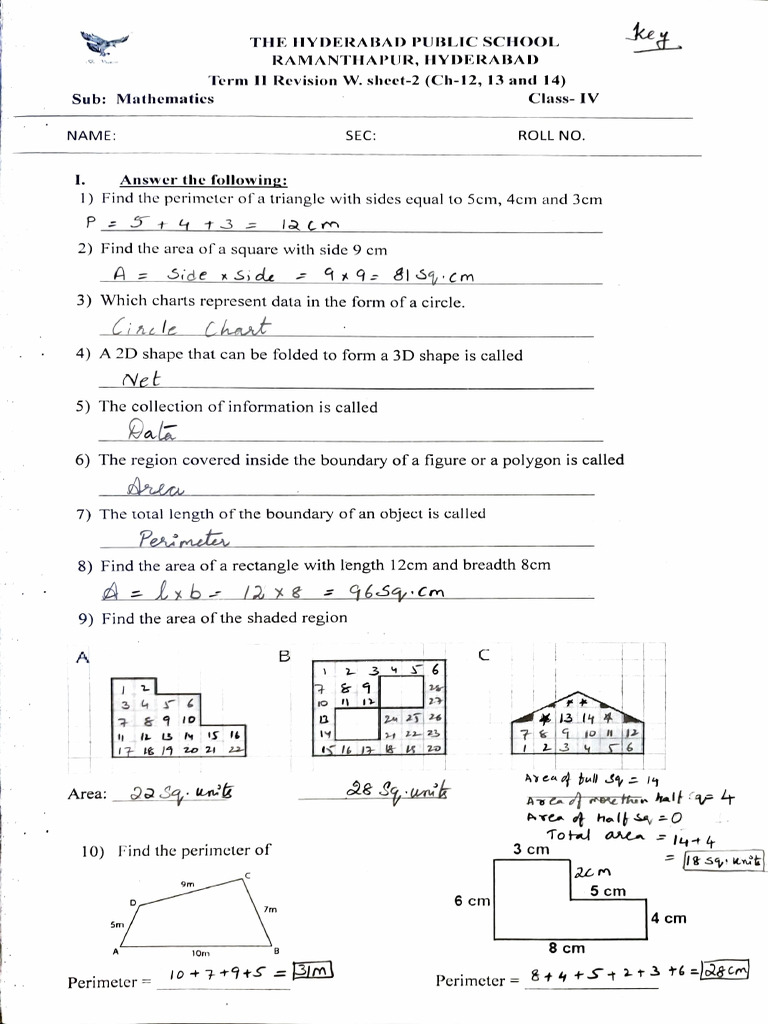 Key
THE HYDERABAD PUBLIC SCHOOL
RAMANTHAPUR, HYDERABAD
Term II Revision W. sheet-2 (Ch-12, 13 and 14)
Sub: Mathematics Class- IV
NAME: SEC: ROLL NO.
I. Answer the following:
1) Find the perimeter of a triangle with sides equal to 5cm, 4cm and 3cm
P = 5 + 4 + 3 = 12cm
2) Find the area of a square with side 9 cm
A = Side × Side = 9 × 9 = 81 Sq.cm
3) Which charts represent data in the form of a circle.
Circle Chart
4) A 2D shape that can be folded to form a 3D shape is called
Net
5) The collection of information is called
Data
6) The region covered inside the boundary of a figure or a polygon is called
Area
7) The total length of the boundary of an object is called
Perimeter
8) Find the area of a rectangle with length 12cm and breadth 8cm
A = l × b = 12 × 8 = 96 Sq.cm
9) Find the area of the shaded region
A B C
1 2
3 4 5 6
7 8 9 10
11 12 13 14 15 16
17 18 19 20 21 22
1 2 3 4 5 6
7 8 9 28
10 11 12 27
13 24 25 26
14 21 22 23
15 16 17 18 19 20
13 14
7 8 9 10 11 12
1 2 3 4 5 6
Area: 22 Sq. units
28 Sq. units
Area of full Sq = 14
Area of more than half = 4
Area of half Sq = 0
Total area = 14+4
= 18 Sq. units
10) Find the perimeter of
9m C
D
5m 7m
A 10m B
3 cm
2cm
6 cm 5 cm
4 cm
8 cm
Perimeter = 10+7+9+5 = 31m
Perimeter = 8+4+5+2+3+6 = 28cm